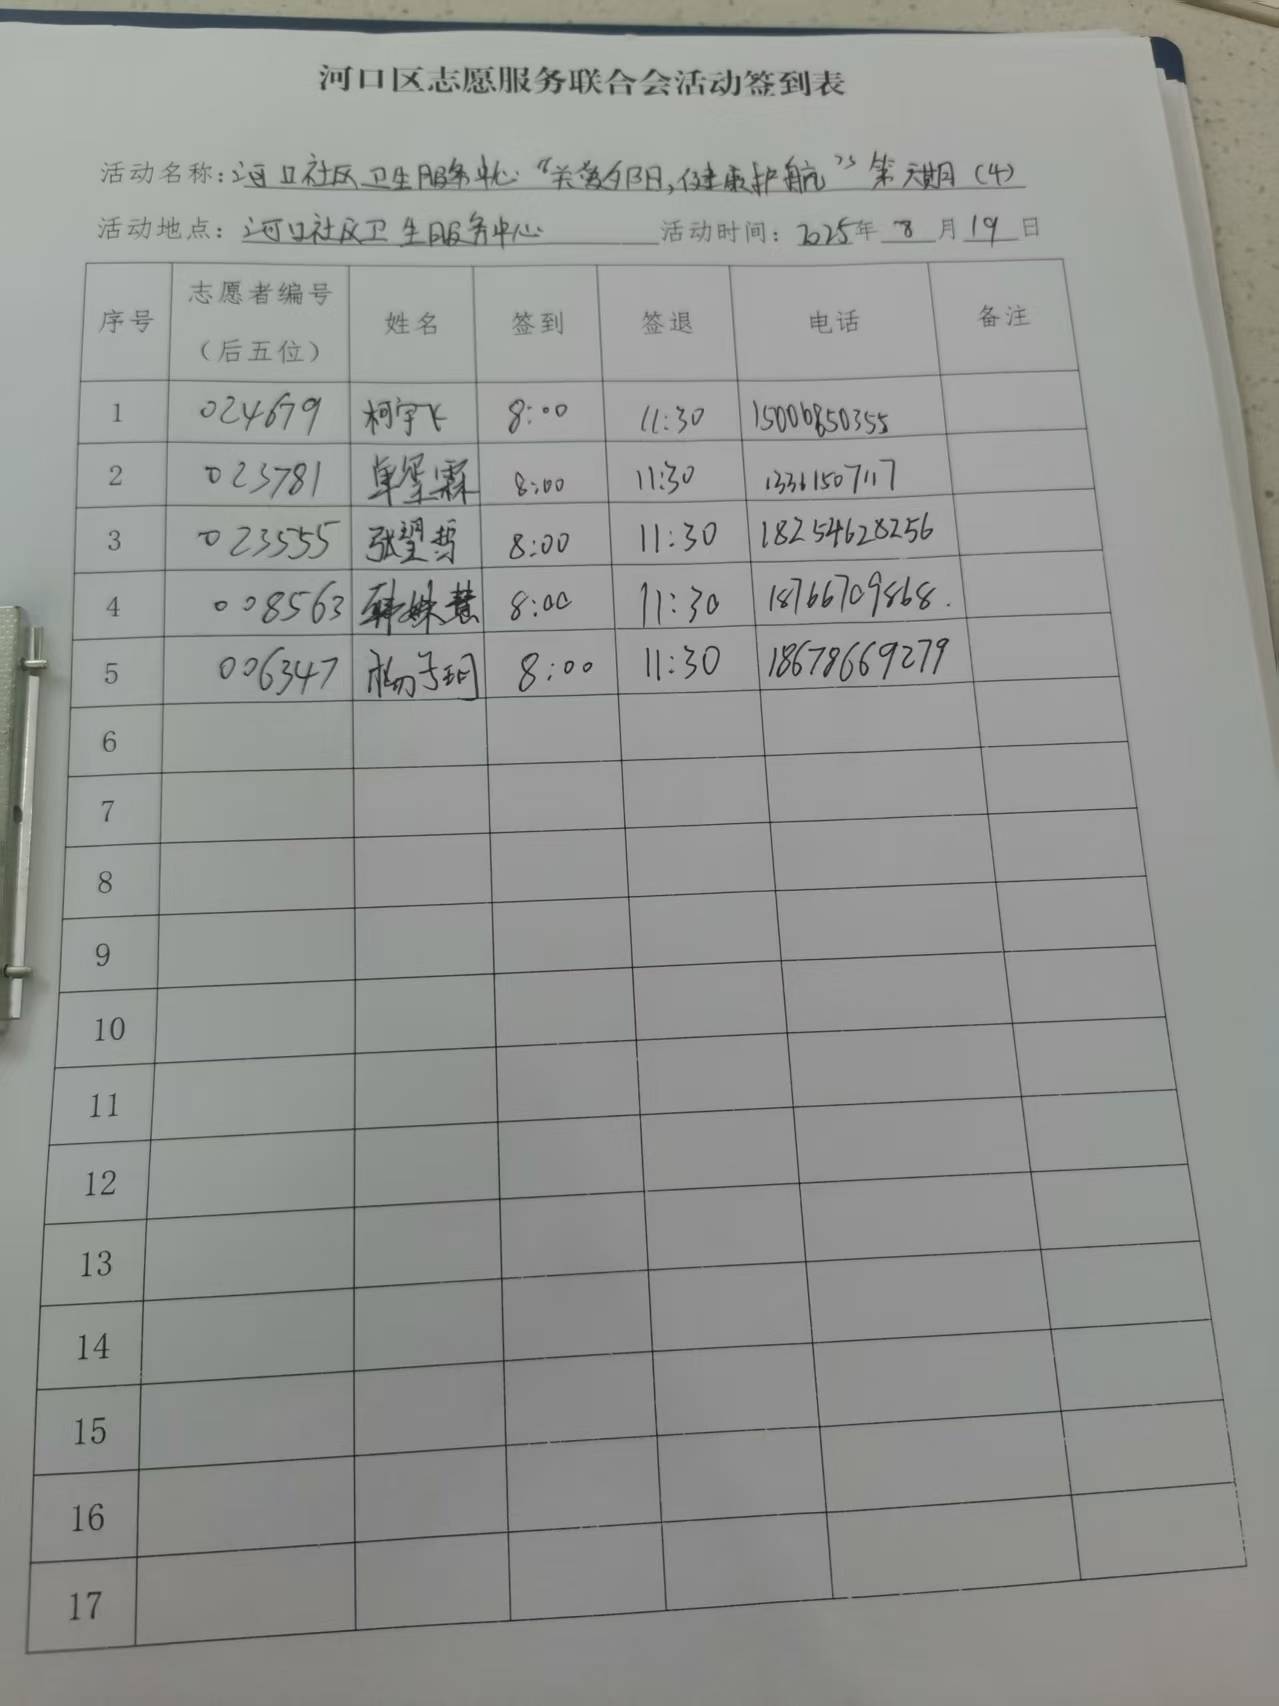 河口区志愿服务联合会活动签到表
活动名称:河口社区卫生服务中心“关爱夕阳,健康护航”第 期(4)
活动地点:河口社区卫生服务中心 活动时间:2025年8月19日
序号 志愿者编号(后五位) 姓名 签到 签退 电话 备注
1 024679 柯宇飞 8:00 11:30 15006850355
2 023781 卓 霖 8:00 11:30 13361507117
3 023555 张翌哲 8:00 11:30 18254628256
4 008563 韩姝慧 8:00 11:30 18766709868.
5 006347 杨子珂 8:00 11:30 18678669279
6
7
8
9
10
11
12
13
14
15
16
17